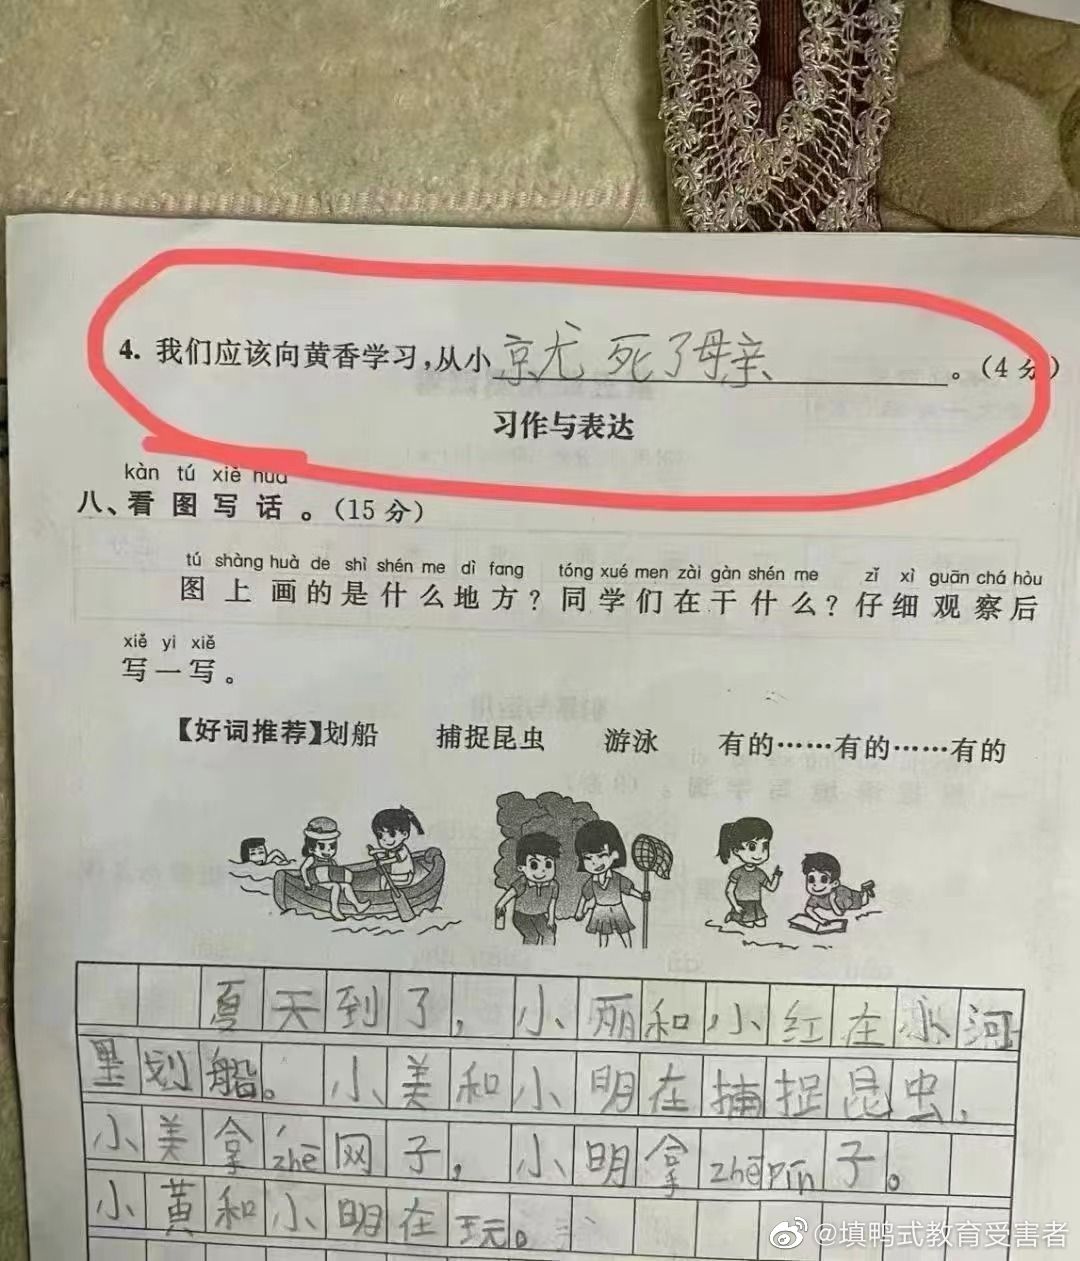 4. 我们应该向黄香学习,从小京尤死了母亲。(4分)
习作与表达
kàn tú xiě huà
八、看图写话。(15分)
tú shàng huà de shì shén me dì fang tóng xué men zài gàn shén me zǐ xì guān chá hòu
图上画的是什么地方?同学们在干什么?仔细观察后
xiě yi xiě
写一写。
【好词推荐】划船 捕捉昆虫 游泳 有的……有的……有的
夏天到了,小丽和小红在小河
里划船。小美和小明在捕捉昆虫,
小美拿zhē网子,小明拿zhē pín子。
小黄和小明在玩。
@填鸭式教育受害者